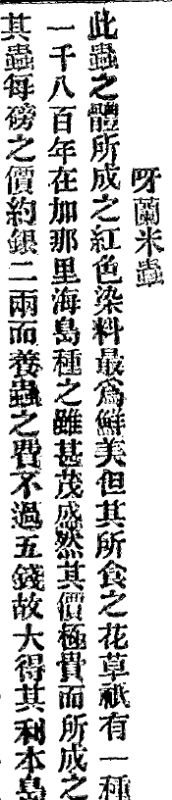 呀蘭米蟲
此蟲之體所成之紅色染料最爲鮮美但其所食之花草祇有一種
一千八百年在加那里海島種之雖甚茂盛然其價極貴而所成之
其蟲每磅之價約銀二兩而養蟲之費不過五錢故大得其利本島